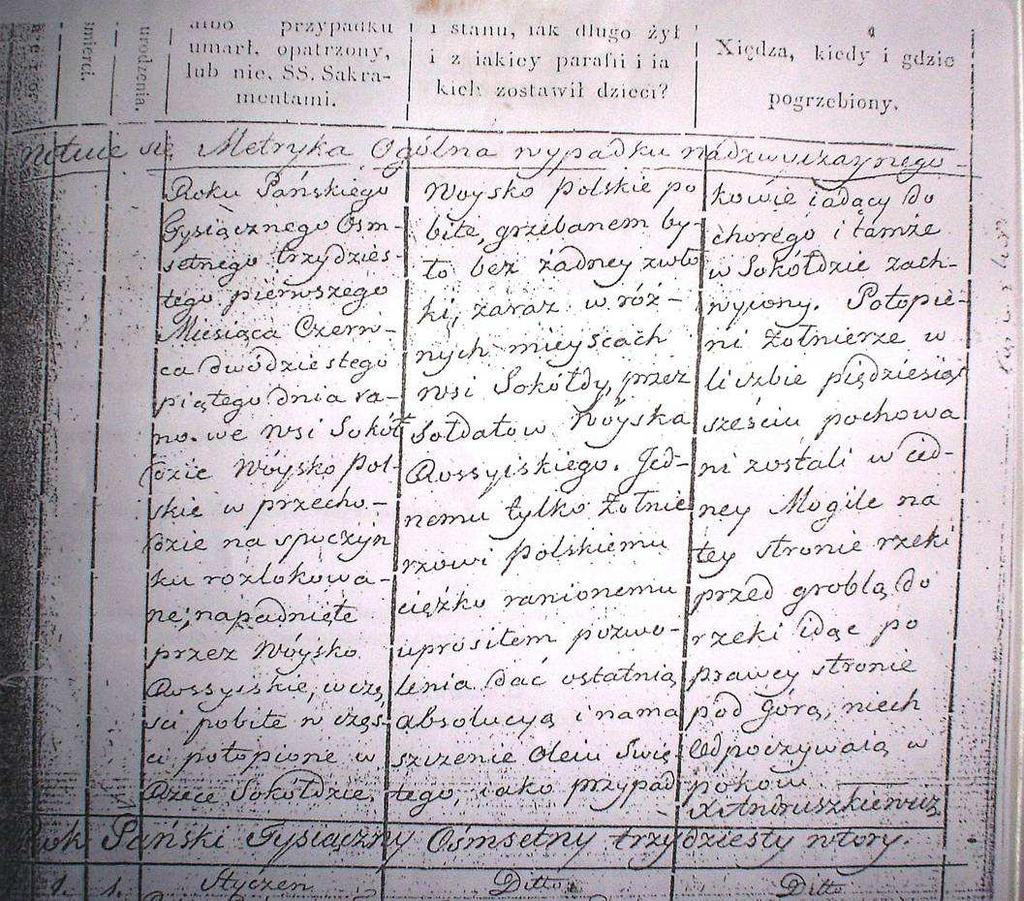 albo przypadku
umarł. opatrzony,
lub nie. SS. Sakra-
mentami.
i stanu, iak długo żył
i z iakiey parafii i ia
kich zostawił dzieci?
Xiędza, kiedy i gdzie
pogrzebiony.
śmierci.
urodzenia.
Notuie się Metryka Ogólna wypadku nádzwyczaynego
Roku Pańskiego
Tysiącznego Ośm-
setnego trzydzies-
tego pierwszego
Miesiąca Czerw-
ca dwódziestego
piątego dnia ra-
no. we wsi Sokół
dzie Wóysko Pol-
skie w przecho-
dzie na spoczyn
ku rozlokowa-
ne, napadnięte
przez Wóysko
Rossyiskie, w czę
ści pobite w częś-
ci potopione w
Rzece Sokółdzie.
Woysko Polskie po
bite, grzebanem by-
ło bez żadney zwło
ki, zaraz w róż-
nych mieyscach
wsi Sokółdy, przez
Sołdatow Wóyska
Rossyiskiego. Jed-
nemu tylko Żołnie
rzowi Polskiemu
ciężko ranionemu
uprosiłem pozwo-
lenia dać ostatnią
absolucyą i nama
szczenie Oleiu Swię
tego, iako przypad
kowie iadący do
chorégo i támże
w Sokółdzie zach-
wycony. Potopie-
ni Żołnierze w
liczbie piędziesiąt
sześciu pochowa
ni zostali w ied-
ney Mogile na
tey stronie rzeki
przed groblą do
rzeki idąc po
prawey stronie
pod górą, niech
odpoczywaią w
pokoiu
Rok Pański Tysiączny Ośmsetny trzydziesty wtory.
1. 1. Styczeń Ditto Ditto